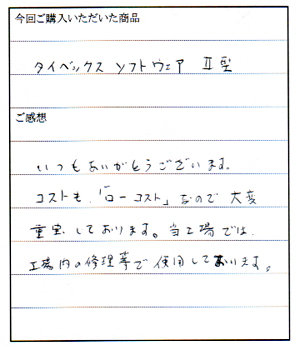 今回ご購入いただいた商品
タイベックス ソフトウェア Ⅱ型
ご感想
いつもありがとうございます。
コストも、「ローコスト」なので 大変
重宝しております。当工場では、
工場内の修理等で使用しております。